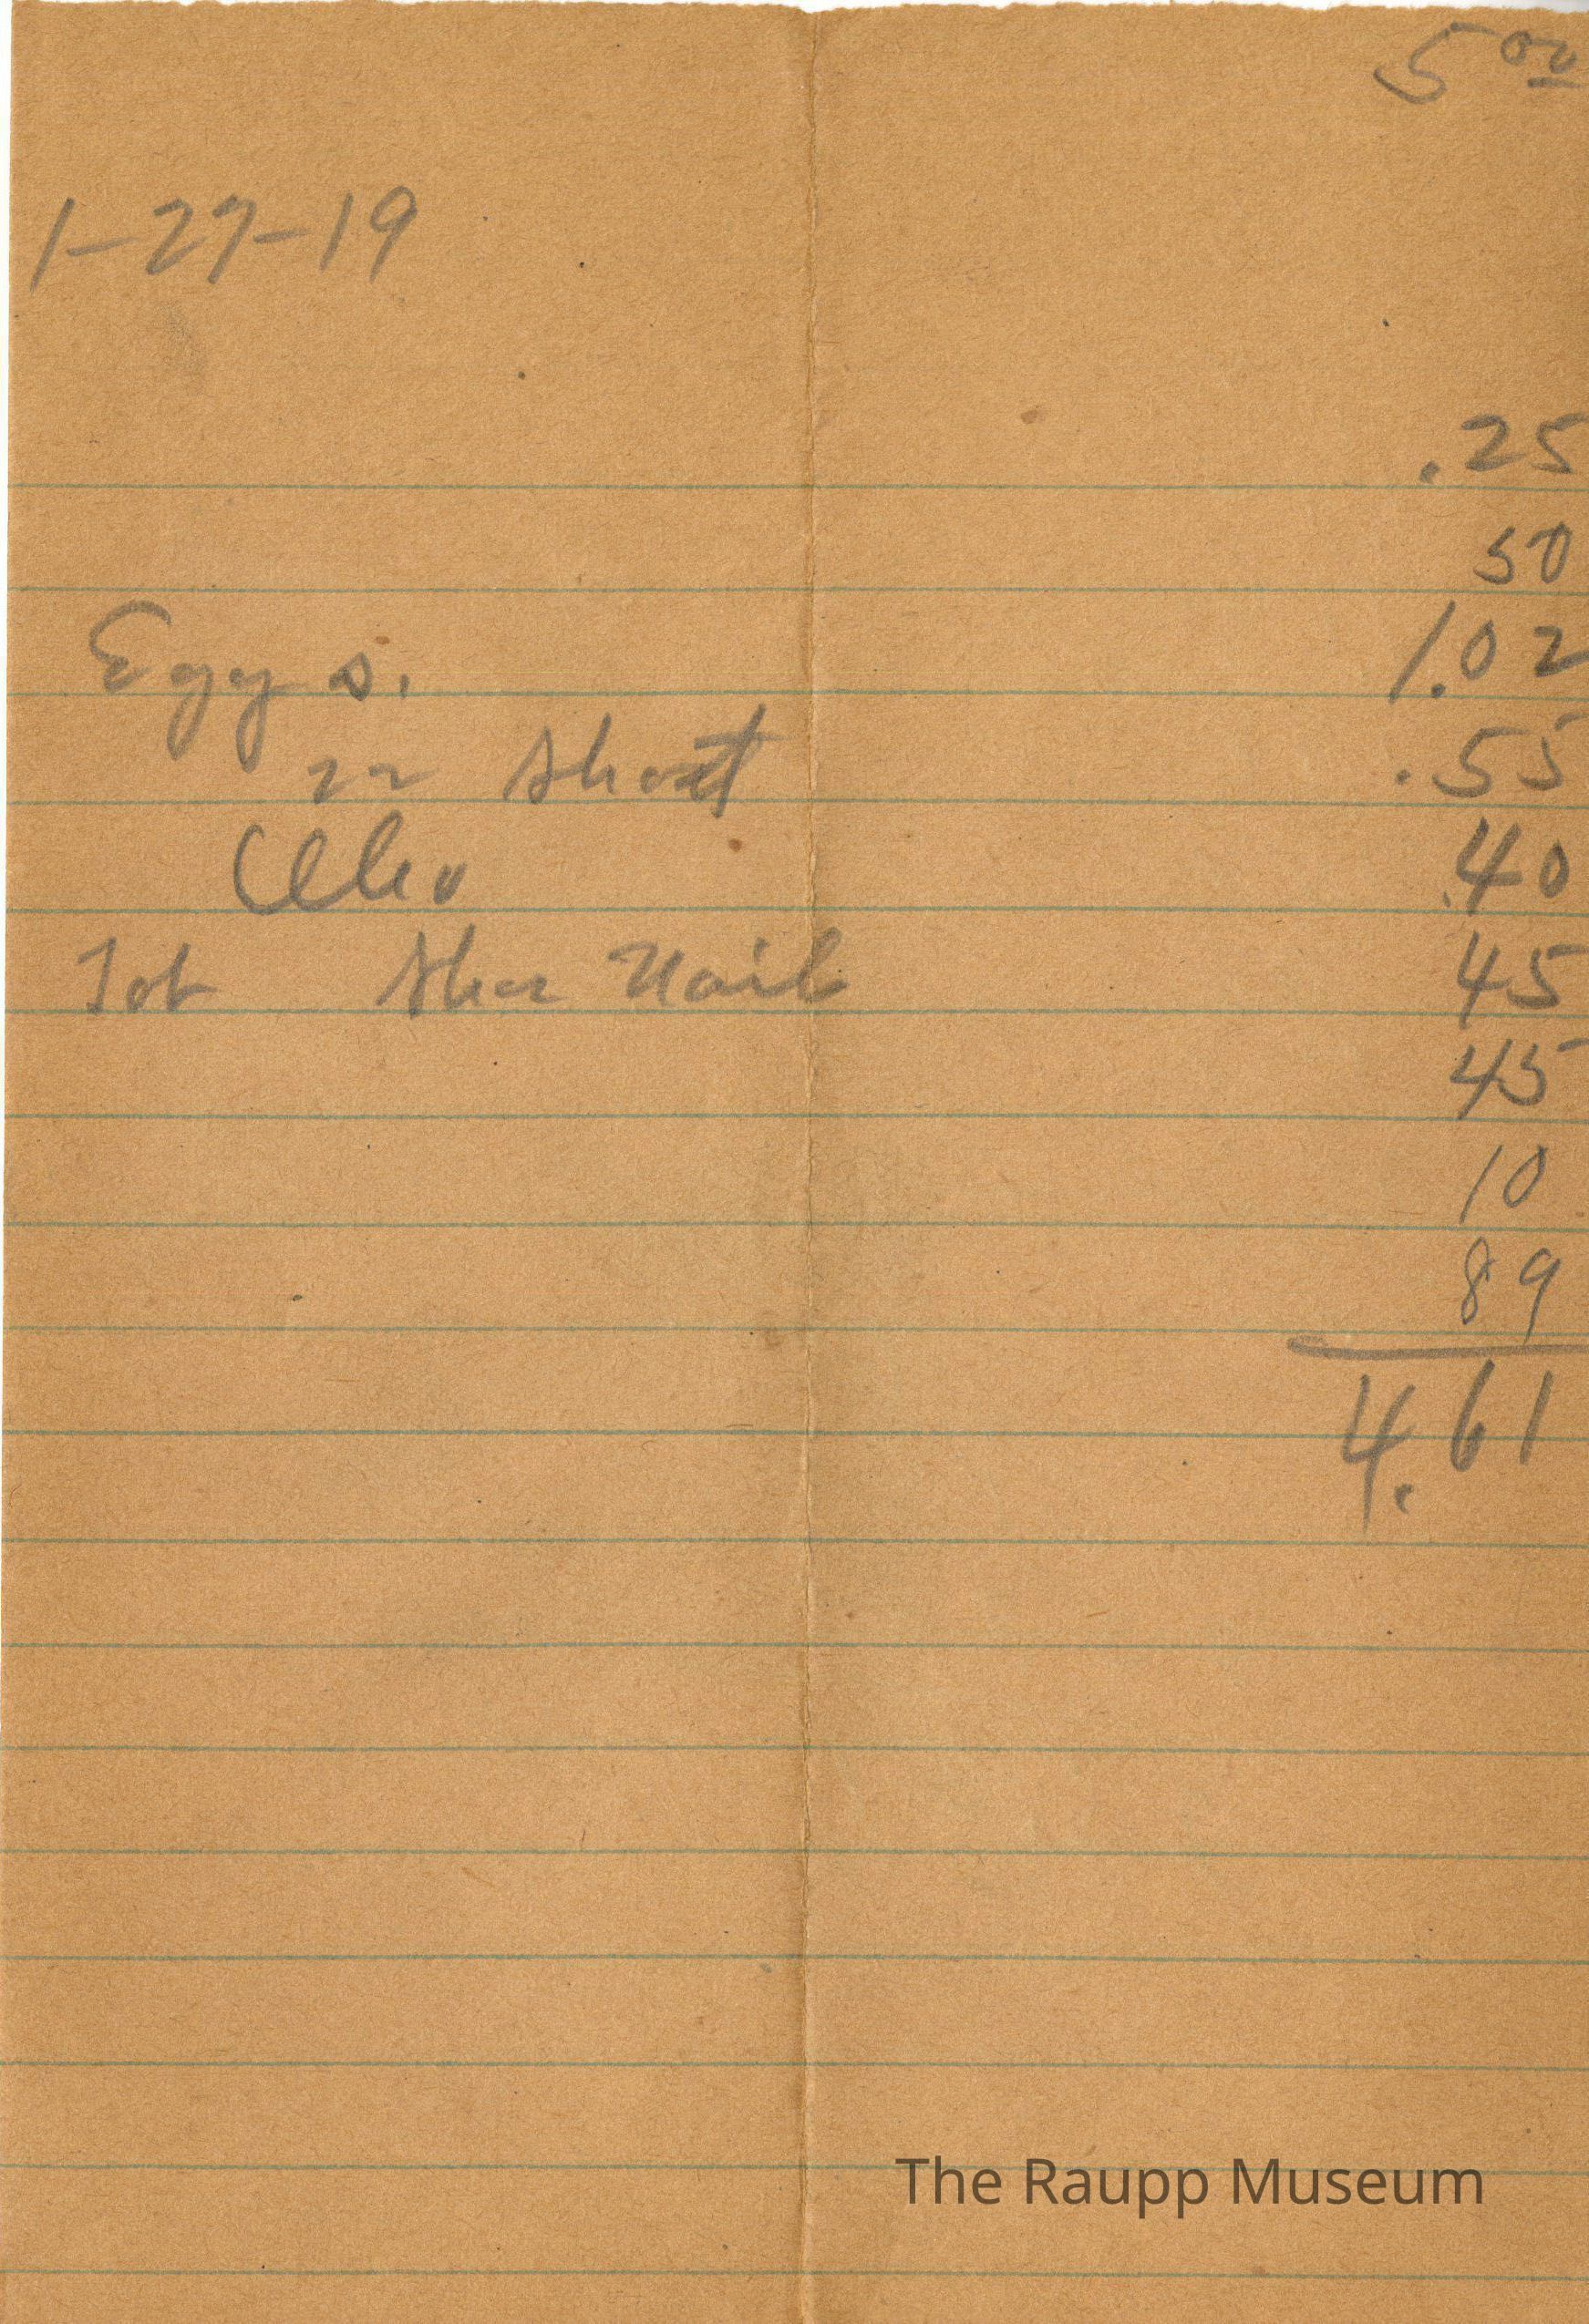 5 00
1-27-19
.25
50
Eggs. 1.02
22 Short .55
40
Shoe Nail 45
45
10
89
4.61
The Raupp Museum